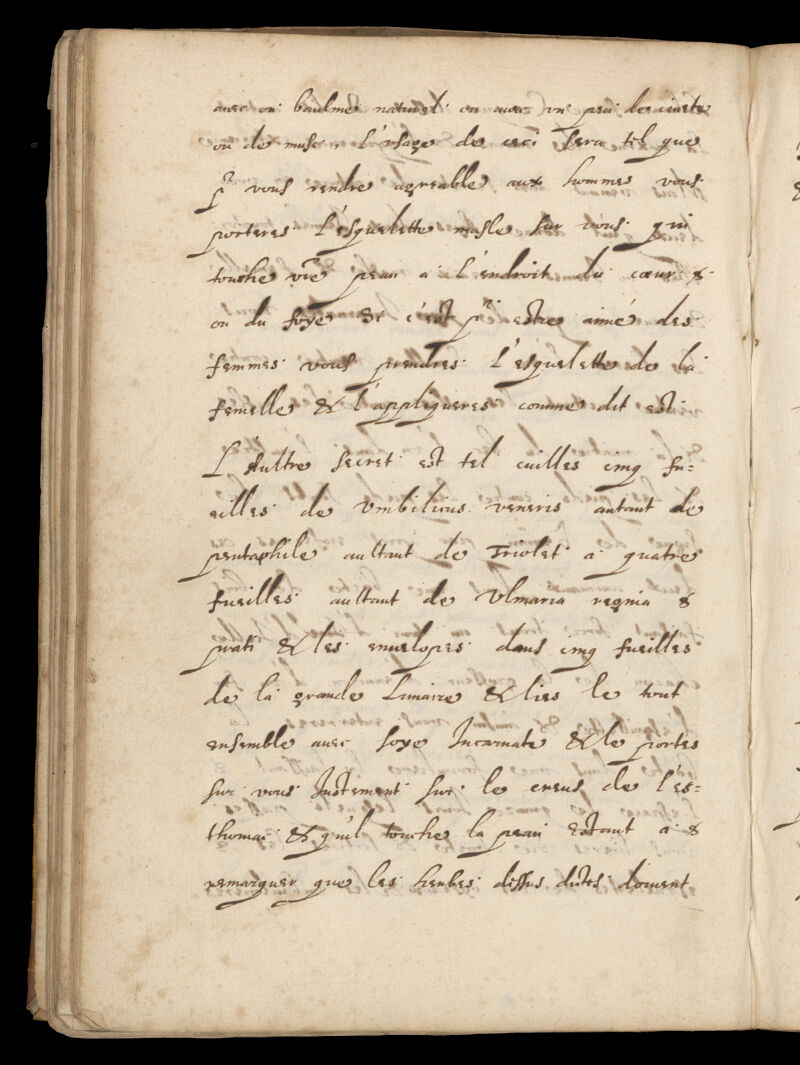 avec un baulme naturel ou avec un peu de civete
ou de musc, L'usage de ceci sera tel que
pr vous rendre agreable aux hommes vous
porteres L'esquelette masle sur vous qui
touche vre peau a L'endroit du cœur &
ou du foye & c'est pr estre aimé des
femmes vous prendres L'esquelette de la
femelle & l'appliqueres comme dit est
L'aultre secret est tel cuilles cinq fu=
eilles de Vmbilicus veneris autant de
pentaphile aultant de Triolet a quatre
fueilles aultant de Vlmaria regnia &
prati & les envelopes dans cinq fueilles
de la grande Lunaire & lies le tout
ensemble avec soye Incarnate & le portes
sur vous Justement sur le creus de l'es=
thomac & qu'il touche la peau Estant a &
remarquer que les herbes dessus dictes doivent